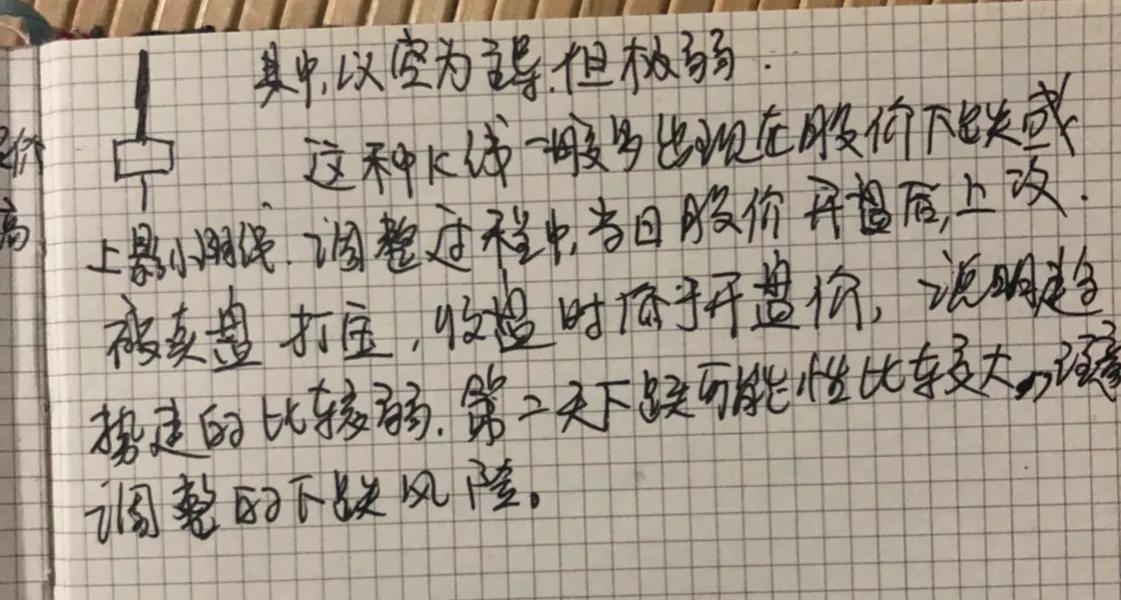 价
高
其中,以空为主导,但极弱.
这种K线一般多出现在股价下跌或
上影小阴线. 调整过程中,当日股价开盘后,上攻.
被卖盘打压,收盘时低于开盘价,说明趋
势走的比较弱.第二天下跌可能性比较大,
调整的下跌风险。